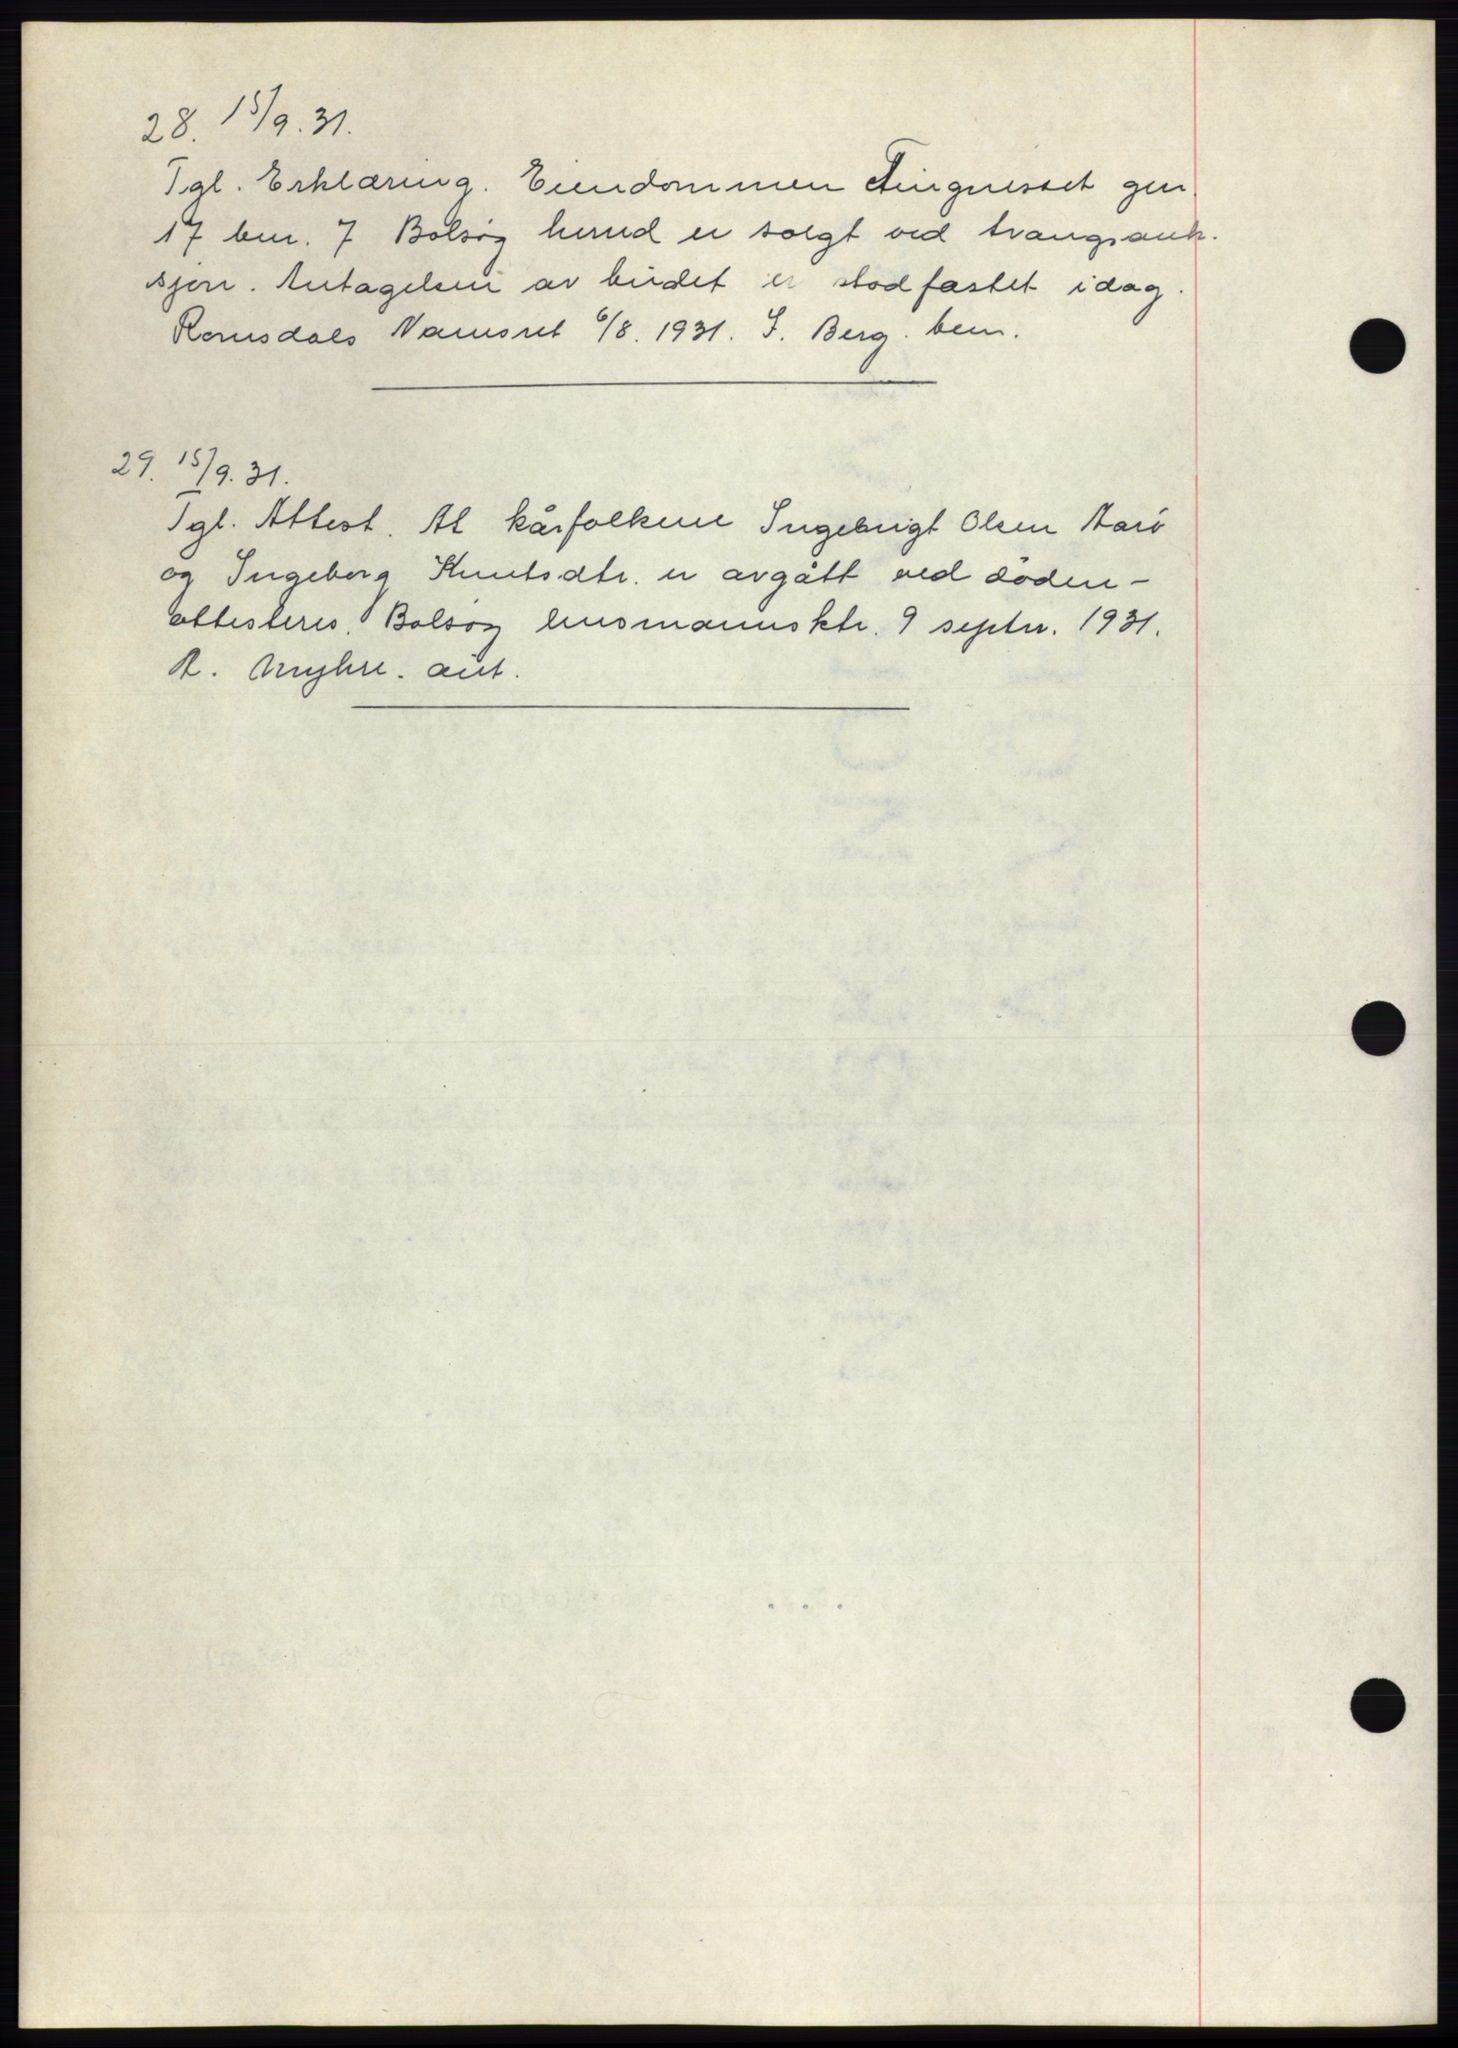 28. 15/9. 31.
Tgl. Erklæring. Eiendommen gnr.
17 bnr. 7 Bolsöy herred er solgt ved tvangsauk-
sjon. Antagelsen av budet er stadfæstet idag.
Romsdals Namsret 6/8. 1931. J. Berg. bem.
29. 15/9. 31.
Tgl. Attest. At kårfolkene Ingebrigt Olsen Aarö
og Ingeborg Knutsdtr. er avgått ved döden -
attesteres. Bolsöy lensmannsktr. 9 septr. 1931.
A. Myhre. aut.